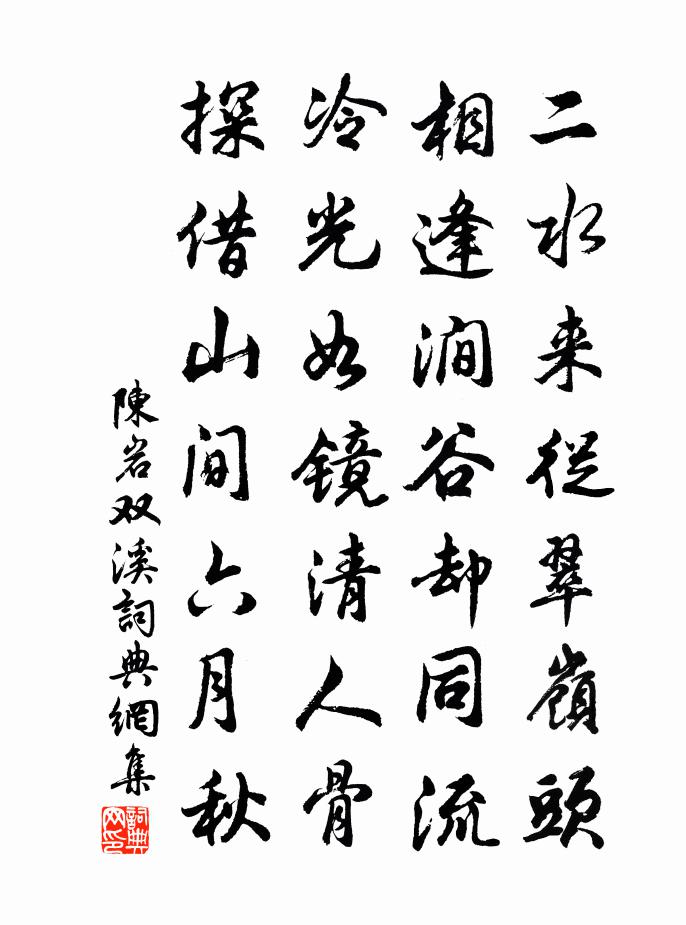 二水来從翠嶺頭
相逢澗谷却同流
冷光如镜清人骨
探借山间六月秋
陳岩双溪詞典網集
詞典网印